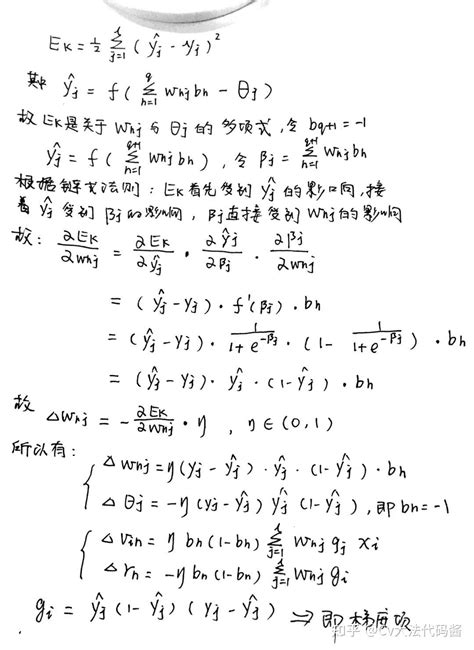 E_K = ½ Σ_{j=1}^{l} (ŷ_j - y_j)²
其中 ŷ_j = f( Σ_{h=1}^{q} w_{hj} b_h - θ_j )
故 E_K是关于 w_{hj} 与 θ_j 的多项式,令 b_{q+1} = -1
ŷ_j = f( Σ_{h=1}^{q+1} w_{hj} b_h ) , 令 β_j = Σ_{h=1}^{q+1} w_{hj} b_h
根据链式法则:E_K首先受到 ŷ_j 的影响,接
着 ŷ_j 受到 β_j 的影响,β_j直接受到 w_{hj} 的影响
故: ∂E_K/∂w_{hj} = ∂E_K/∂ŷ_j · ∂ŷ_j/∂β_j · ∂β_j/∂w_{hj}
= (ŷ_j - y_j) · f'(β_j) · b_h
= (ŷ_j - y_j) · 1/(1+e^{-β_j}) · (1 - 1/(1+e^{-β_j})) · b_h
= (ŷ_j - y_j) · ŷ_j · (1-ŷ_j) · b_h
故 △w_{hj} = -∂E_K/∂w_{hj} · η , η∈(0,1)
所以有:
△w_{hj} = η(y_j - ŷ_j) · ŷ_j · (1-ŷ_j) · b_h
△θ_j = -η(y_j - ŷ_j) ŷ_j (1-ŷ_j) , 即 b_h = -1
△v_{ih} = η b_h(1-b_h) Σ_{j=1}^{l} w_{hj} g_j x_i
△r_h = -η b_h(1-b_h) Σ_{j=1}^{l} w_{hj} g_i
g_i = ŷ_j (1-ŷ_j) (y_j - ŷ_j) ⇒ 即梯度项
知乎 @cv大法代码酱